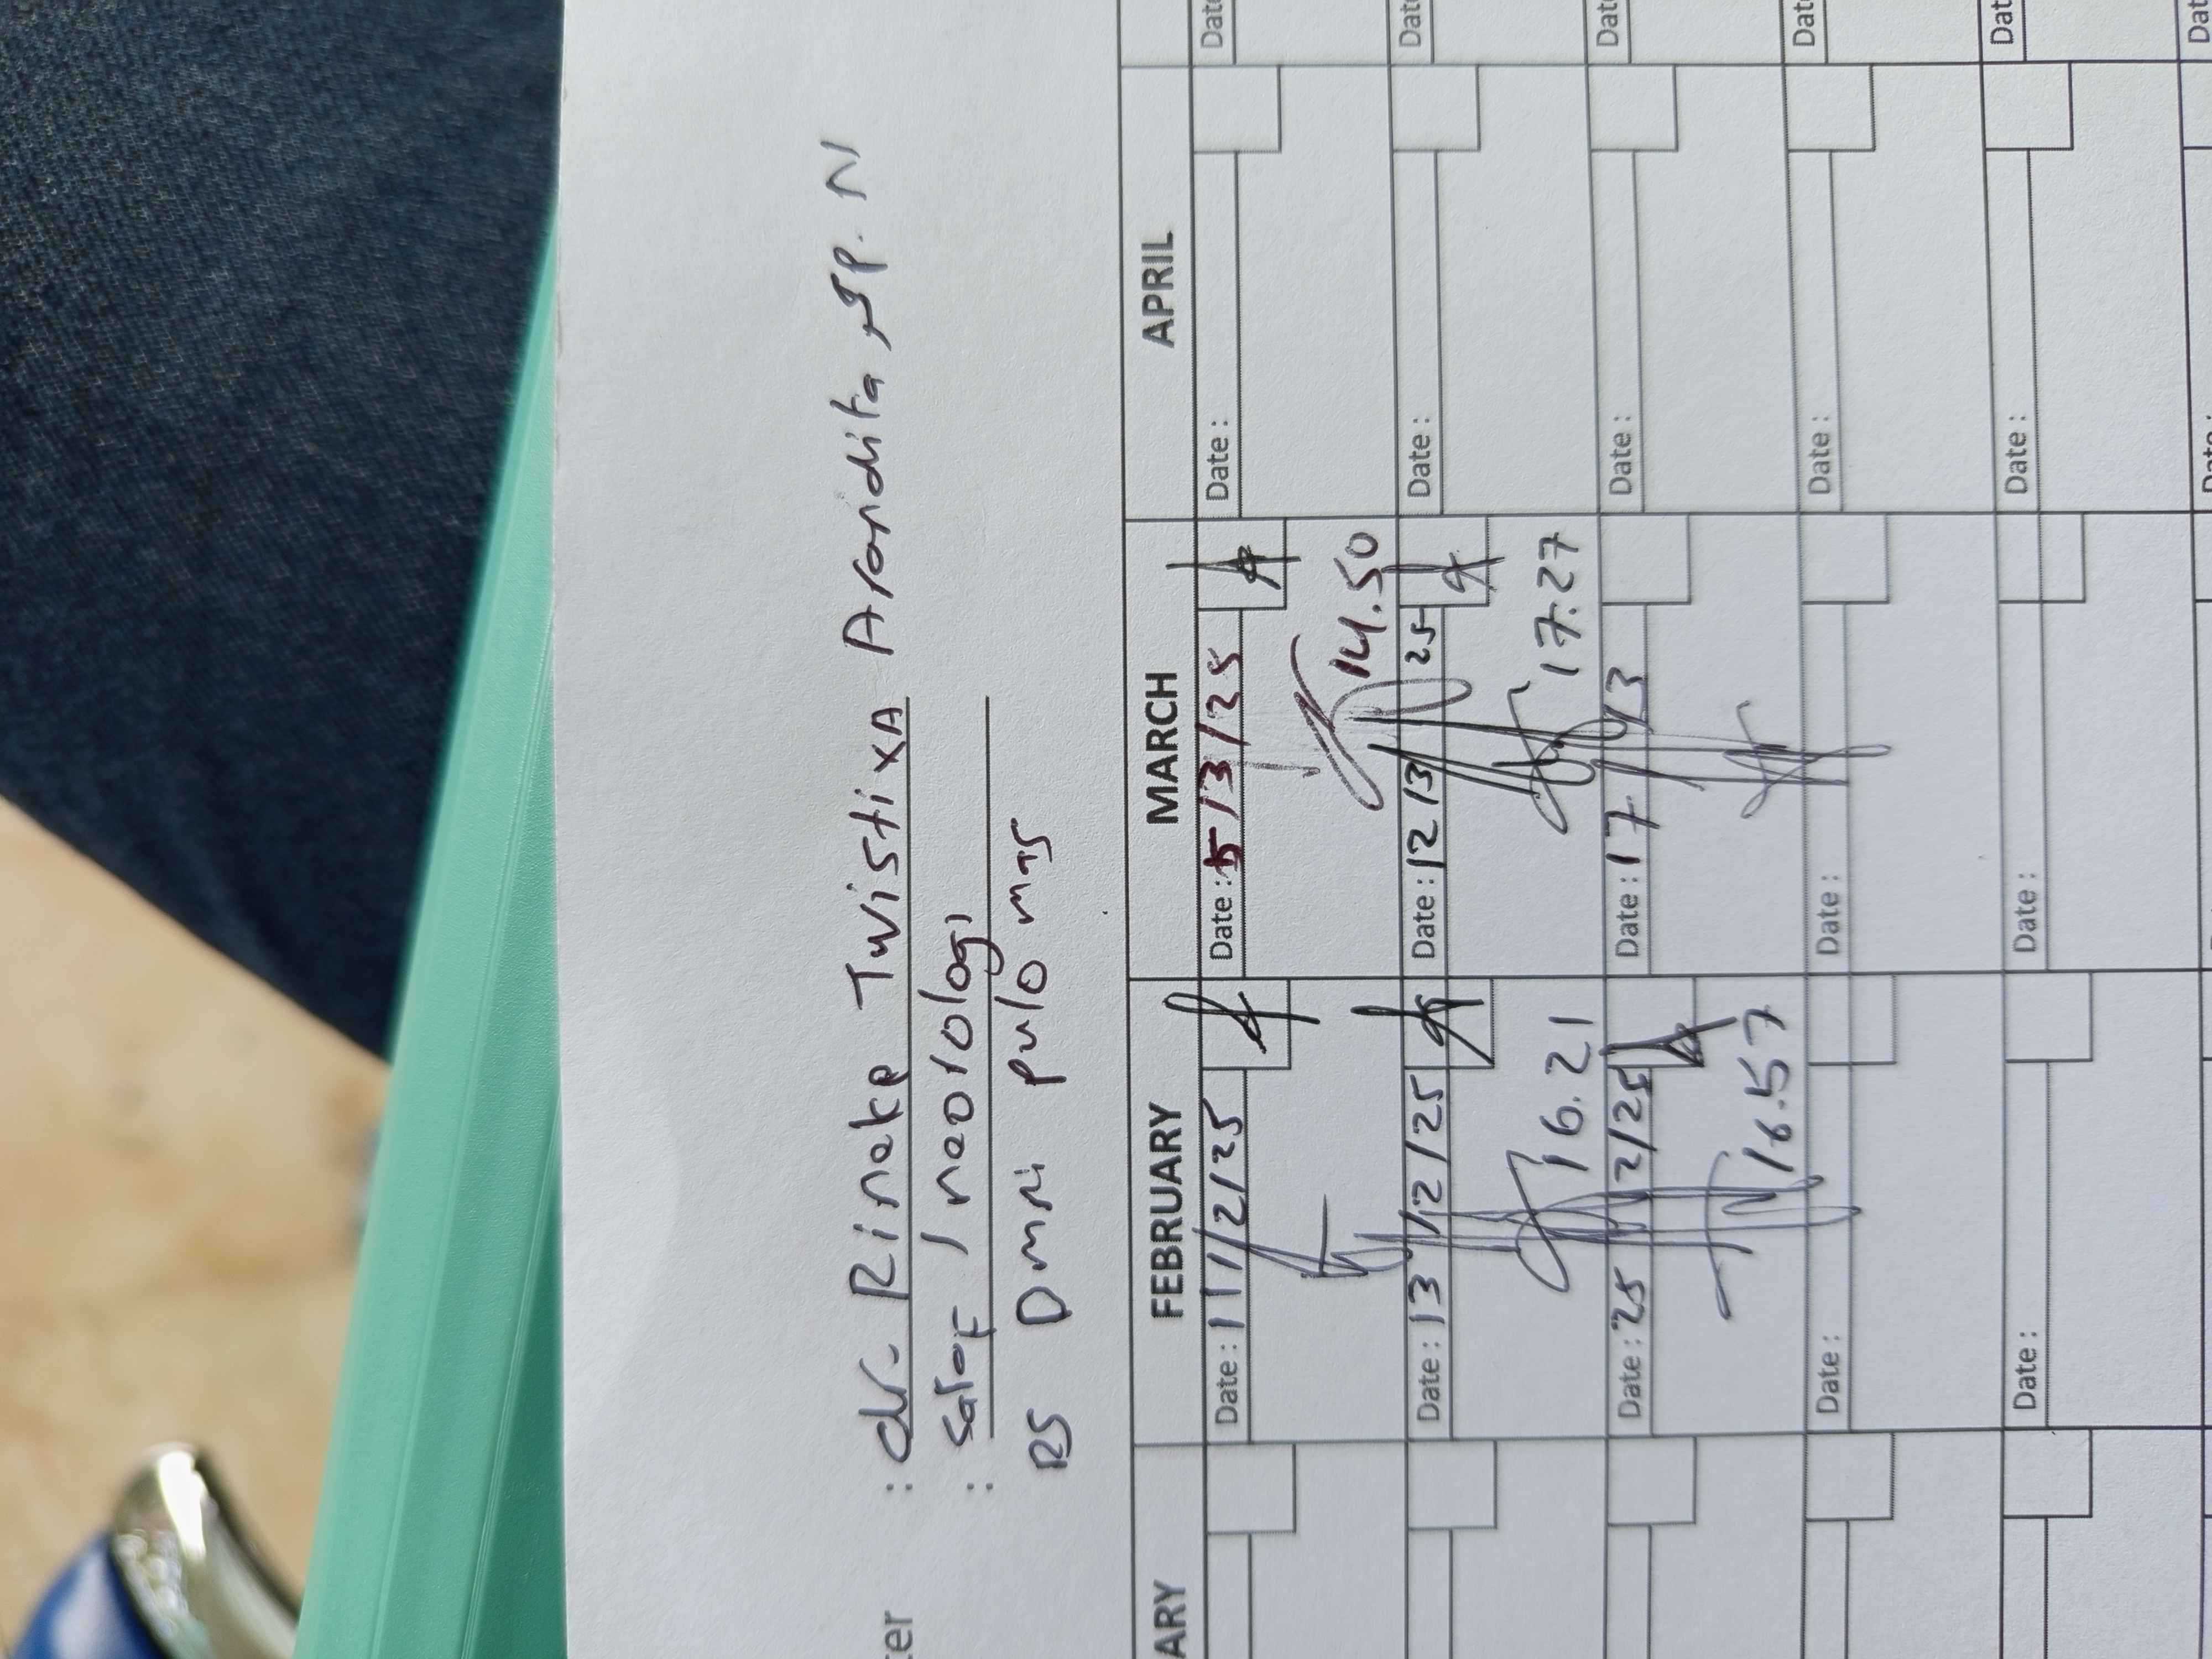 ter : dr. Rineke Twistixa Arandita, Sp. N
: saraf / neorologi
RS Dmri pulo mas
ARY FEBRUARY MARCH APRIL
Date : 11/2/25 Date : 5/3/25 Date : Date
14.50
Date : 13/2/25 Date : 12/3 25 Date : Date
16.21 17.27
Date : 25 2/25 Date : 17/3 Date : Date
16.57
Date : Date : Date : Date
Date : Date : Date : Date
Date : Dat